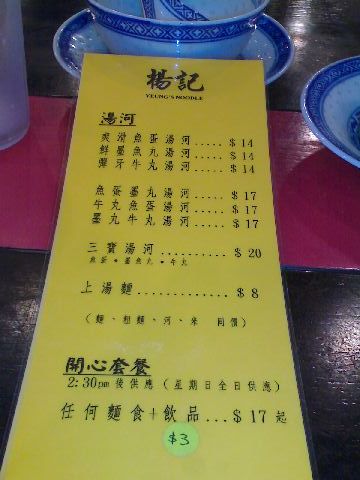 楊記
YEUNG'S NOODLE
湯河
爽滑魚蛋湯河.....$14
鮮墨魚丸湯河.....$14
彈牙牛丸湯河.....$14
魚蛋墨丸湯河.....$17
牛丸魚蛋湯河.....$17
墨丸牛丸湯河.....$17
三寶湯河...........$20
魚蛋•墨魚丸•牛丸
上湯麵.............$8
（麵、粗麵、河、米 同價）
開心套餐
2:30pm後供應（星期日全日供應）
任何麵食+飲品...$17起
$3